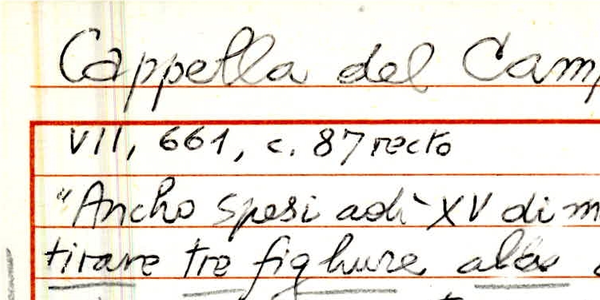 Cappella del Camp
VII, 661, c. 87 recto
"Ancho spesi adì XV di m
tirare tre fighure alla